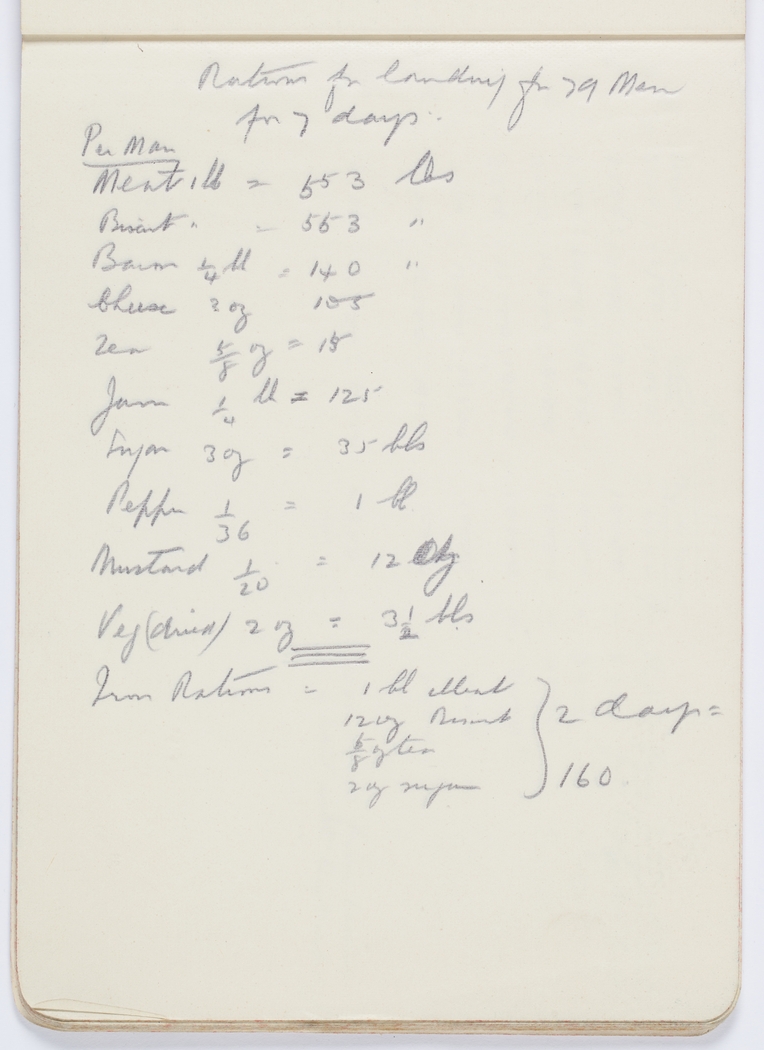 Rations for landing for 79 Men
for 7 days.
Per Man
Meat 1 lb = 553 lbs
Biscuit " = 553 "
Bacon 1/4 lb = 140 "
Cheese 3 oz 105
Tea 5/8 oz = 15
Jam 1/4 lb = 125
Sugar 3 oz = 35 lbs
Pepper 1/36 = 1 lb
Mustard 1/20 = 12 oz
Veg (dried) 2 oz = 3 1/2 lbs
Iron Rations = 1 lb Meat
12 oz Biscuit } 2 days =
5/8 oz tea
2 oz sugar 160